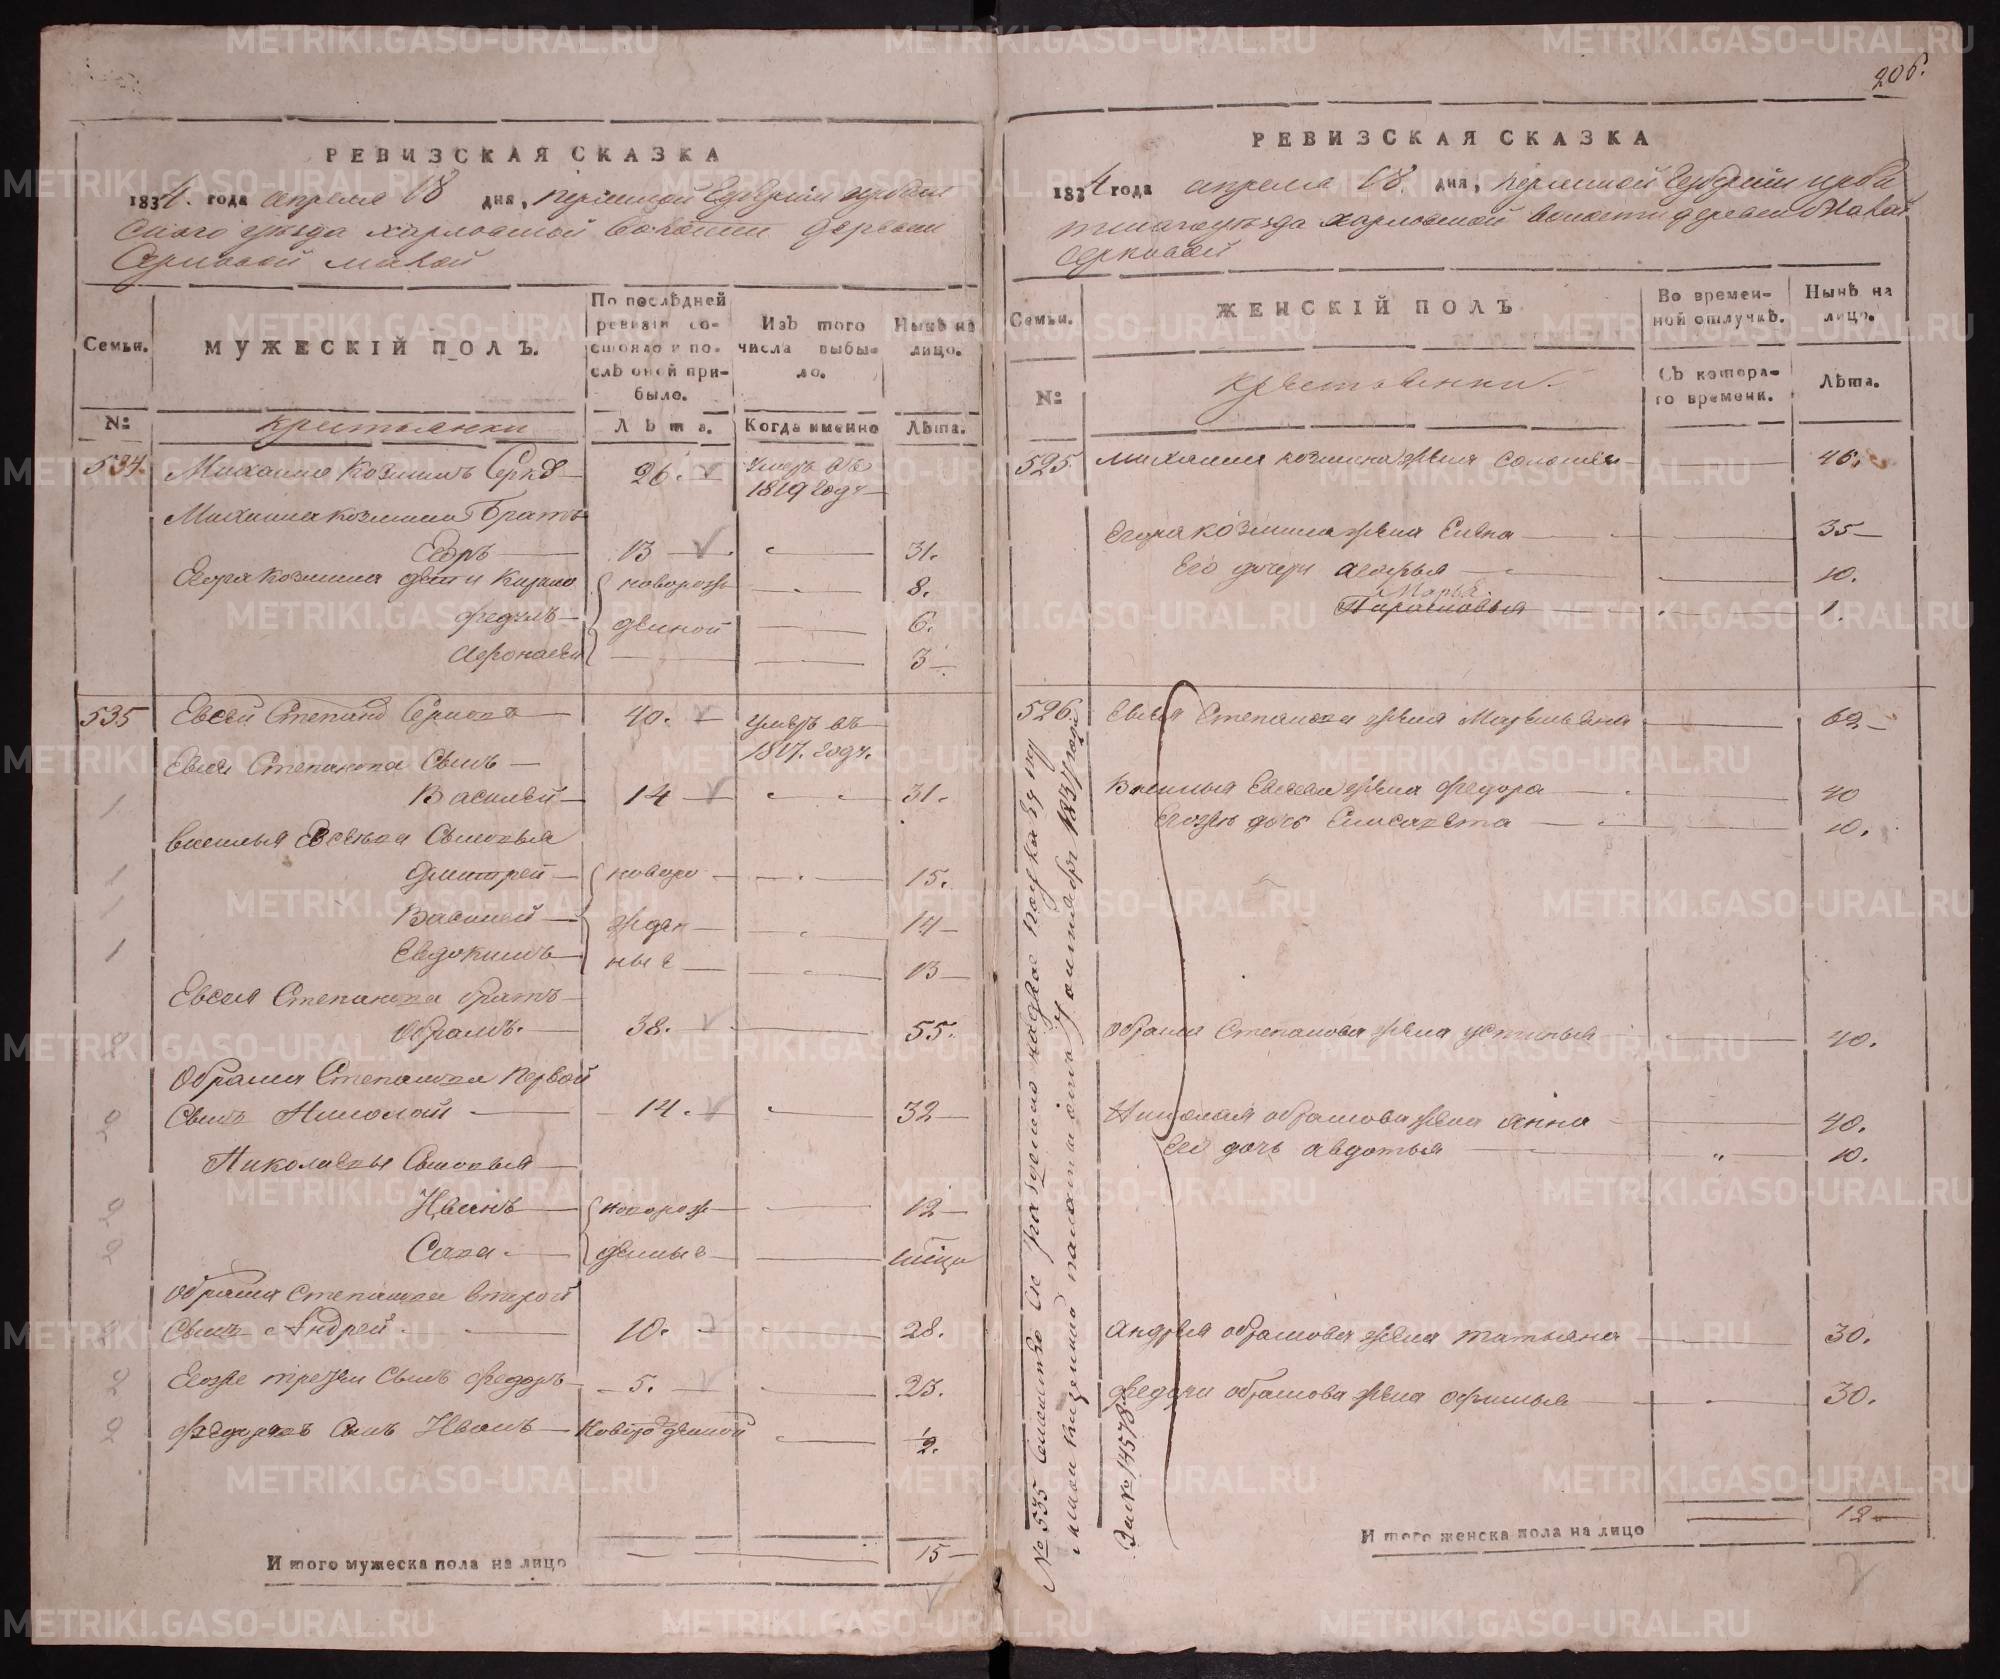 206.
РЕВИЗСКАЯ СКАЗКА
1834. года апреля 18 дня, пермской Губернии ирбит
скаго уезда харловской волости деревни
Серковой малой
Семьи. МУЖЕСКІЙ ПОЛЪ. По послѣдней ревизіи состояло и послѣ оной прибыло. Изъ того числа выбыло. Нынѣ на лицо.
№ Крестьянки Лѣта. Когда именно Лѣта.
534. Михаило Козминъ Серков 26. умеръ въ
1819 году
Михаила козмина Братъ
Егоръ 13 31.
Егора козмина дети Кирило новорож 8.
Федулъ денной 6.
Афонасей 3
535 Евсей Степанов Серковъ 40. умеръ въ
1817. году.
Евсея Степанова Сынъ
1 Василей 14 31.
Василья Евсеева Сыновья
1 Дмитрей новоро 15.
1 Василей жден 14
1 Евдокимъ ные 13
Евсея Степанова братъ
2 Обрамъ. 38. 55.
Обрама Степанова Первой
2 Сынъ Николай 14. 32
Николаевы Сыновья
2 Иванъ новорож 12
2 Сава денные
Обрама Степанова второй
2 Сынъ Андрей 10. 28.
2 Егоже третей Сынъ Федоръ 5. 23.
2 Федоровъ Сынъ Иванъ Новорожденной 1/2.
Итого мужеска пола на лицо 15
РЕВИЗСКАЯ СКАЗКА
1834 года апреля 18. дня, пермской Губернии ирби
тскаго уезда харловской волости деревни Малой
Серковой
Семьи. ЖЕНСКІЙ ПОЛЪ Во временной отлучкѣ. Нынѣ на лицо.
№ крестьянки. Съ котораго времени. Лѣта.
525. Михаила козмина жена Соломея 46.
Егора козмина жена Елена 35
Его дочери агафья 10.
Марья.
Парасковья 1.
526. Евсея Степанова жена Маремьяна 62
Василья Евсеева жена Федора 40
Егоже дочь Елисавета 10.
Обрама Степанова жена устинья 40.
Николая обрамова жена анна 40.
Его дочь авдотья 10.
андрея обрамова жена татьяна 30.
Федора обрамова жена офимья 30.
Итого женска пола на лицо 12
№ 535 Семейство сіе разделено на двое по указу
казенной палаты отъ 7 октября 1837 года
За № 14578
METRIKI.GASO-URAL.RU